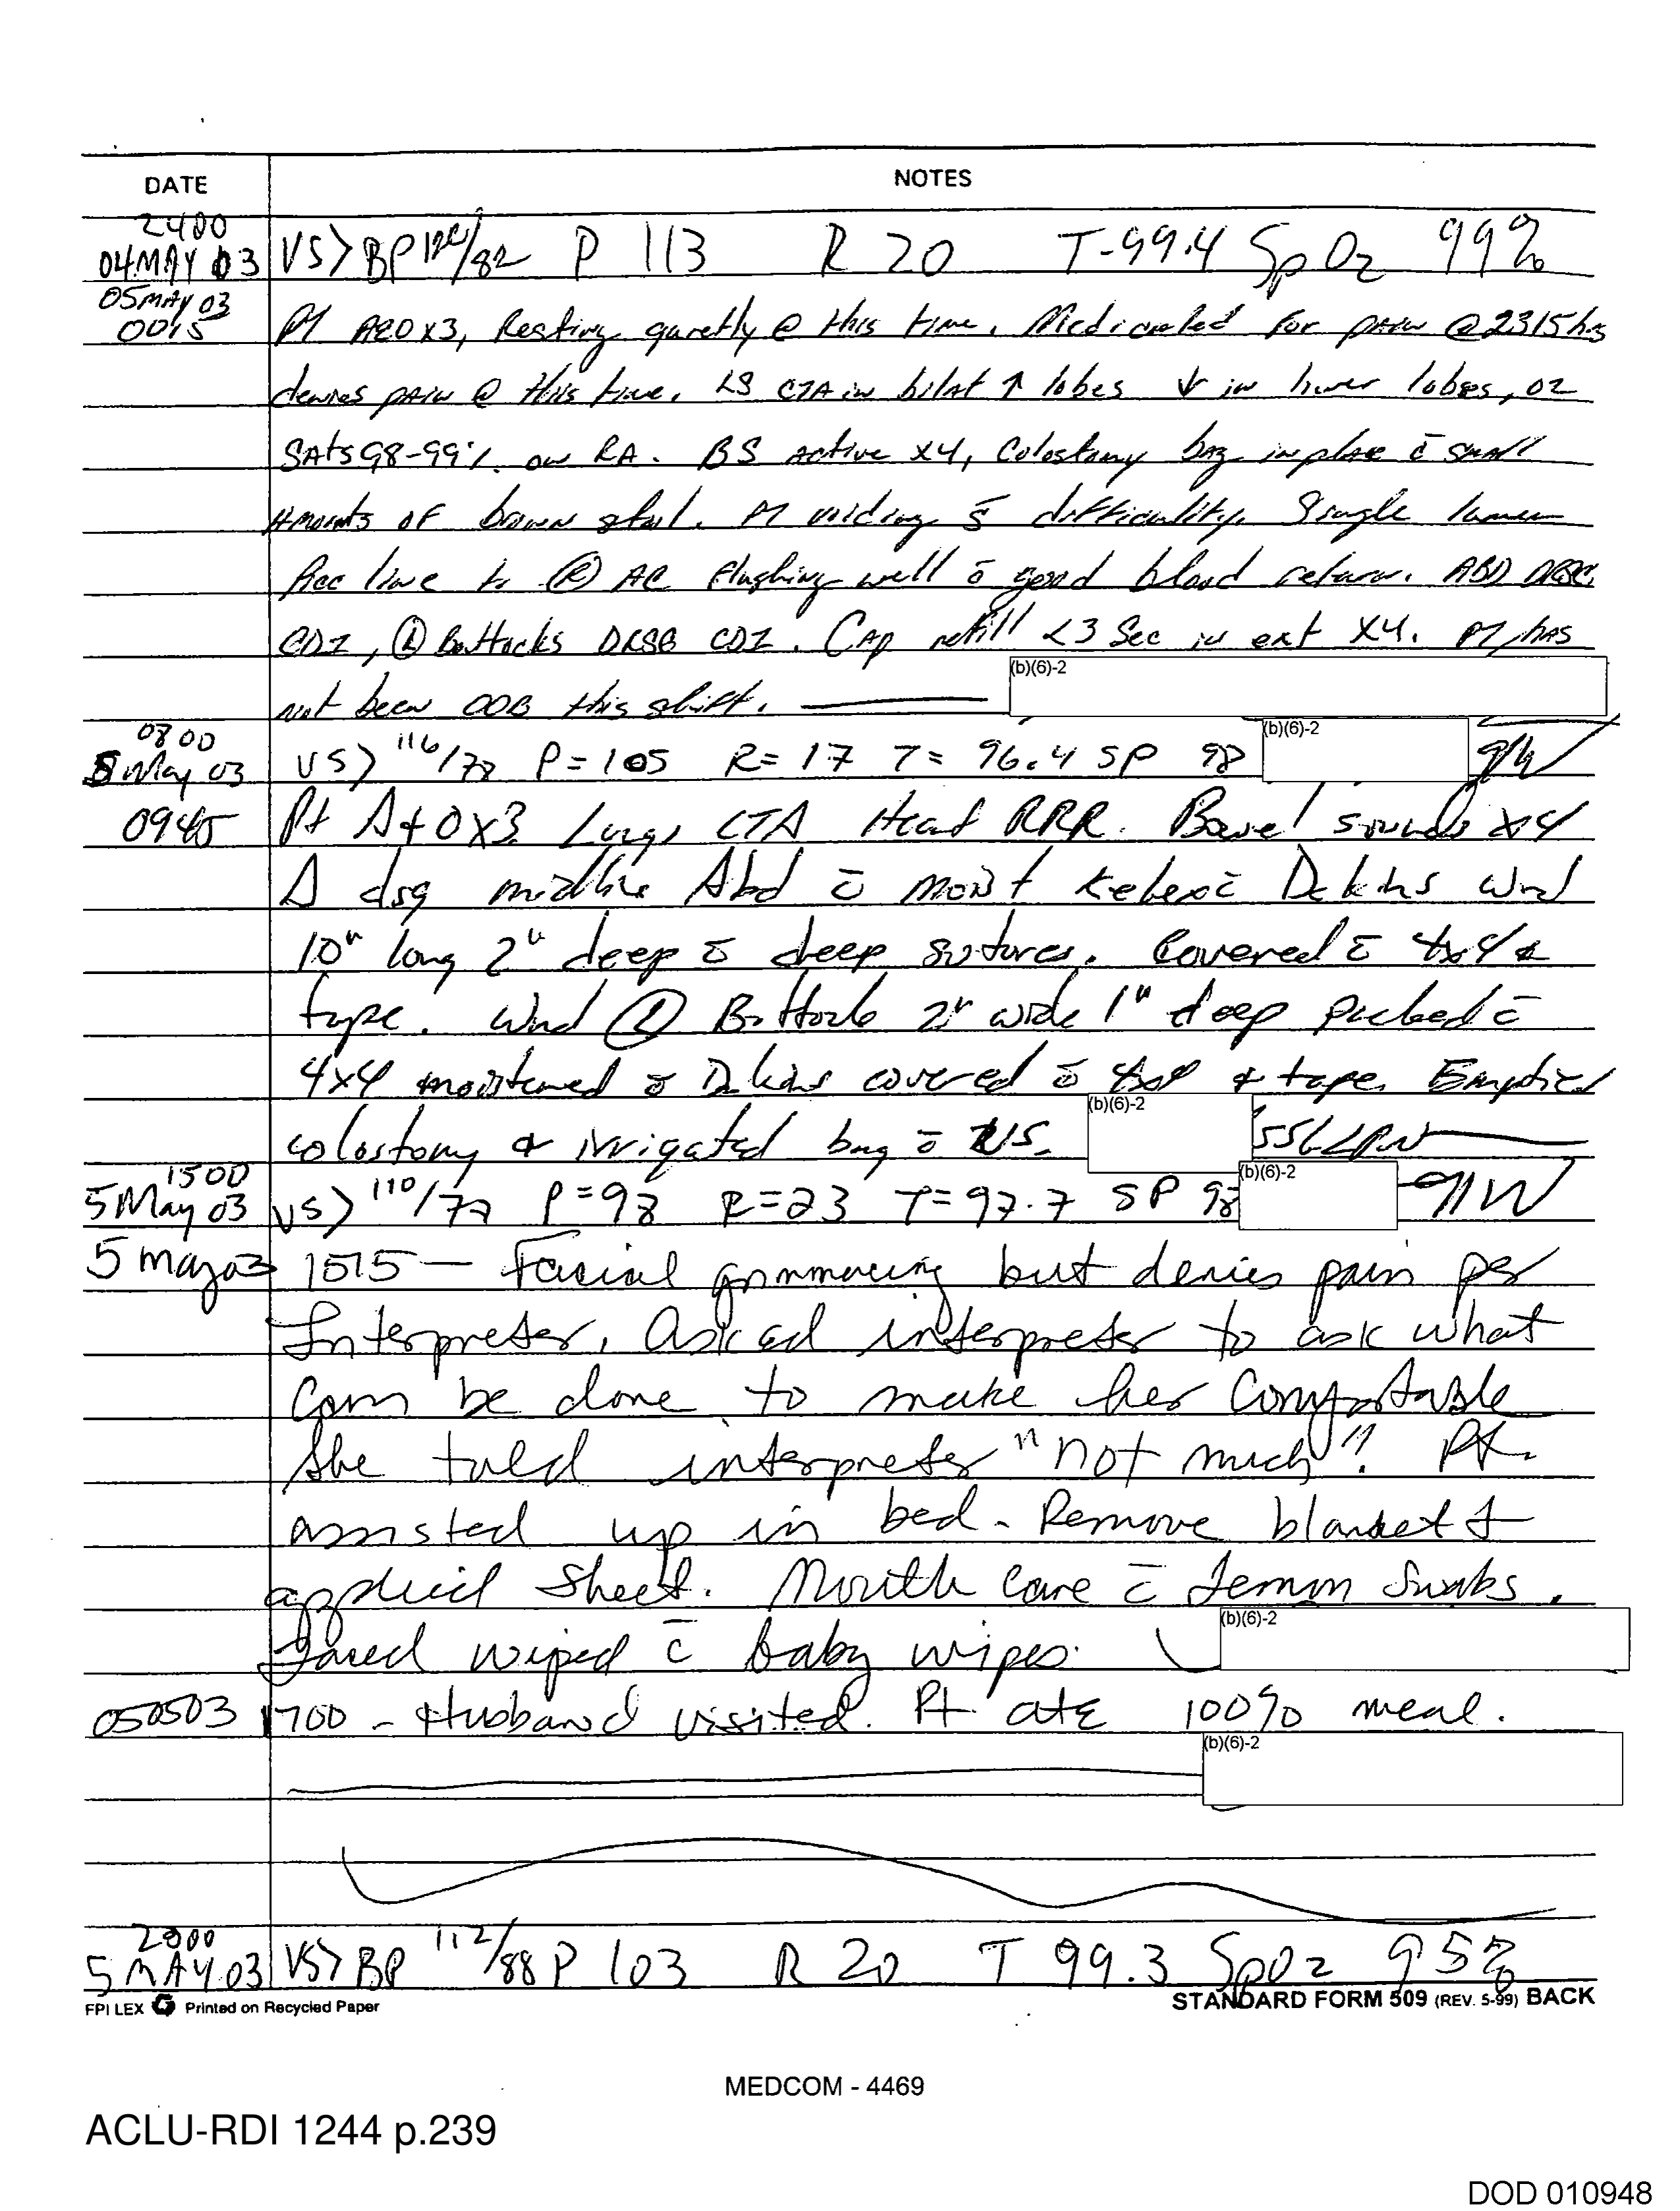 DATE NOTES
2400
04MAY03 VS> BP /82 P 113 R 20 T-99.4 SpO2 99%
05MAY03
0015 Pt A&Ox3, Resting quietly @ this time. Medicated for pain @ 2315hrs
denies pain @ this time. LS CTA in bilat ↑ lobes ↓ in lower lobes, O2
SATS 98-99% on RA. BS Active x4, Colostomy bag in place c̄ small
Amounts OF brown stool. Pt voiding s̄ difficulity. Single lumen
line to AC flushing well c̄ good blood return. ABD DRSG
CDI, Ⓛ Buttocks DRSG CDI. Cap refill <3 Sec in ext X4. Pt has
not been OOB this shift.
(b)(6)-2
0800
5 May 03 VS> 116/78 P=105 R=17 T= 96.4 SP 98 (b)(6)-2 91W
0945 Pt A+Ox3 Lungs CTA Heart RRR. Bowel sounds x4
Δ dsg midline Abd c̄ moist c̄ Dakins wnd
10" long 2" deep c̄ deep sutures. Covered c̄ 4x4 &
tape. Wnd Ⓛ Buttock 2" wide 1" deep packed c̄
4x4 moistened c̄ Dakins covered c̄ 4x4 & tape. Emptied
colostomy & irrigated bag c̄ NS. (b)(6)-2
1500
5 May 03 VS> 110/77 P=98 R=23 T=97.7 SP 98 (b)(6)-2 91W
5 May 03 1515 — Facial grimmacing but denies pain per
Interpreter. Asked interpreter to ask what
can be done to make her comfortable
She told interpreter "not much". Pt.
assisted up in bed. Remove blanket &
applied sheet. Mouth care c̄ lemon swabs.
Faced wiped c̄ baby wipes. (b)(6)-2
050503 1700 - Husband visited. Pt ate 100% meal.
(b)(6)-2
2000
5 MAY 03 VS> BP 112/88 P 103 R 20 T 99.3 SpO2 95%
FPI LEX Printed on Recycled Paper STANDARD FORM 509 (REV. 5-99) BACK
MEDCOM - 4469
ACLU-RDI 1244 p.239
DOD 010948